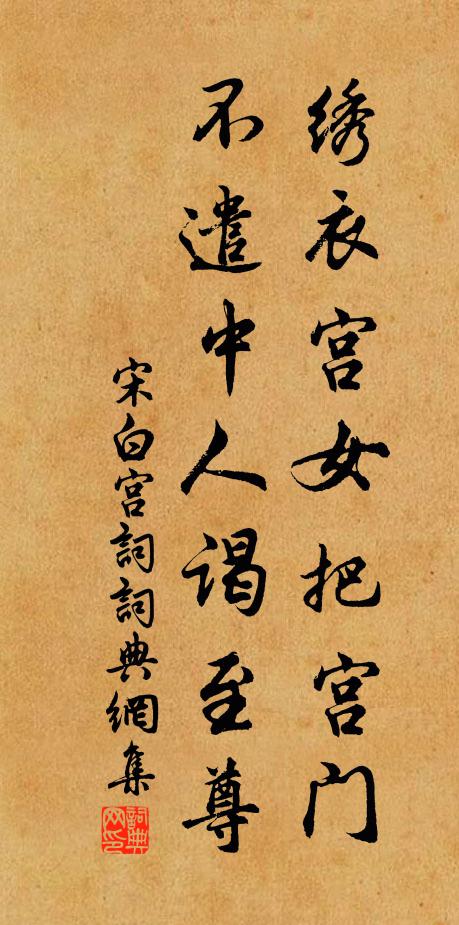 绣衣宫女把宫门
不遣中人谒至尊
宋白宫詞詞典網集
詞典网印